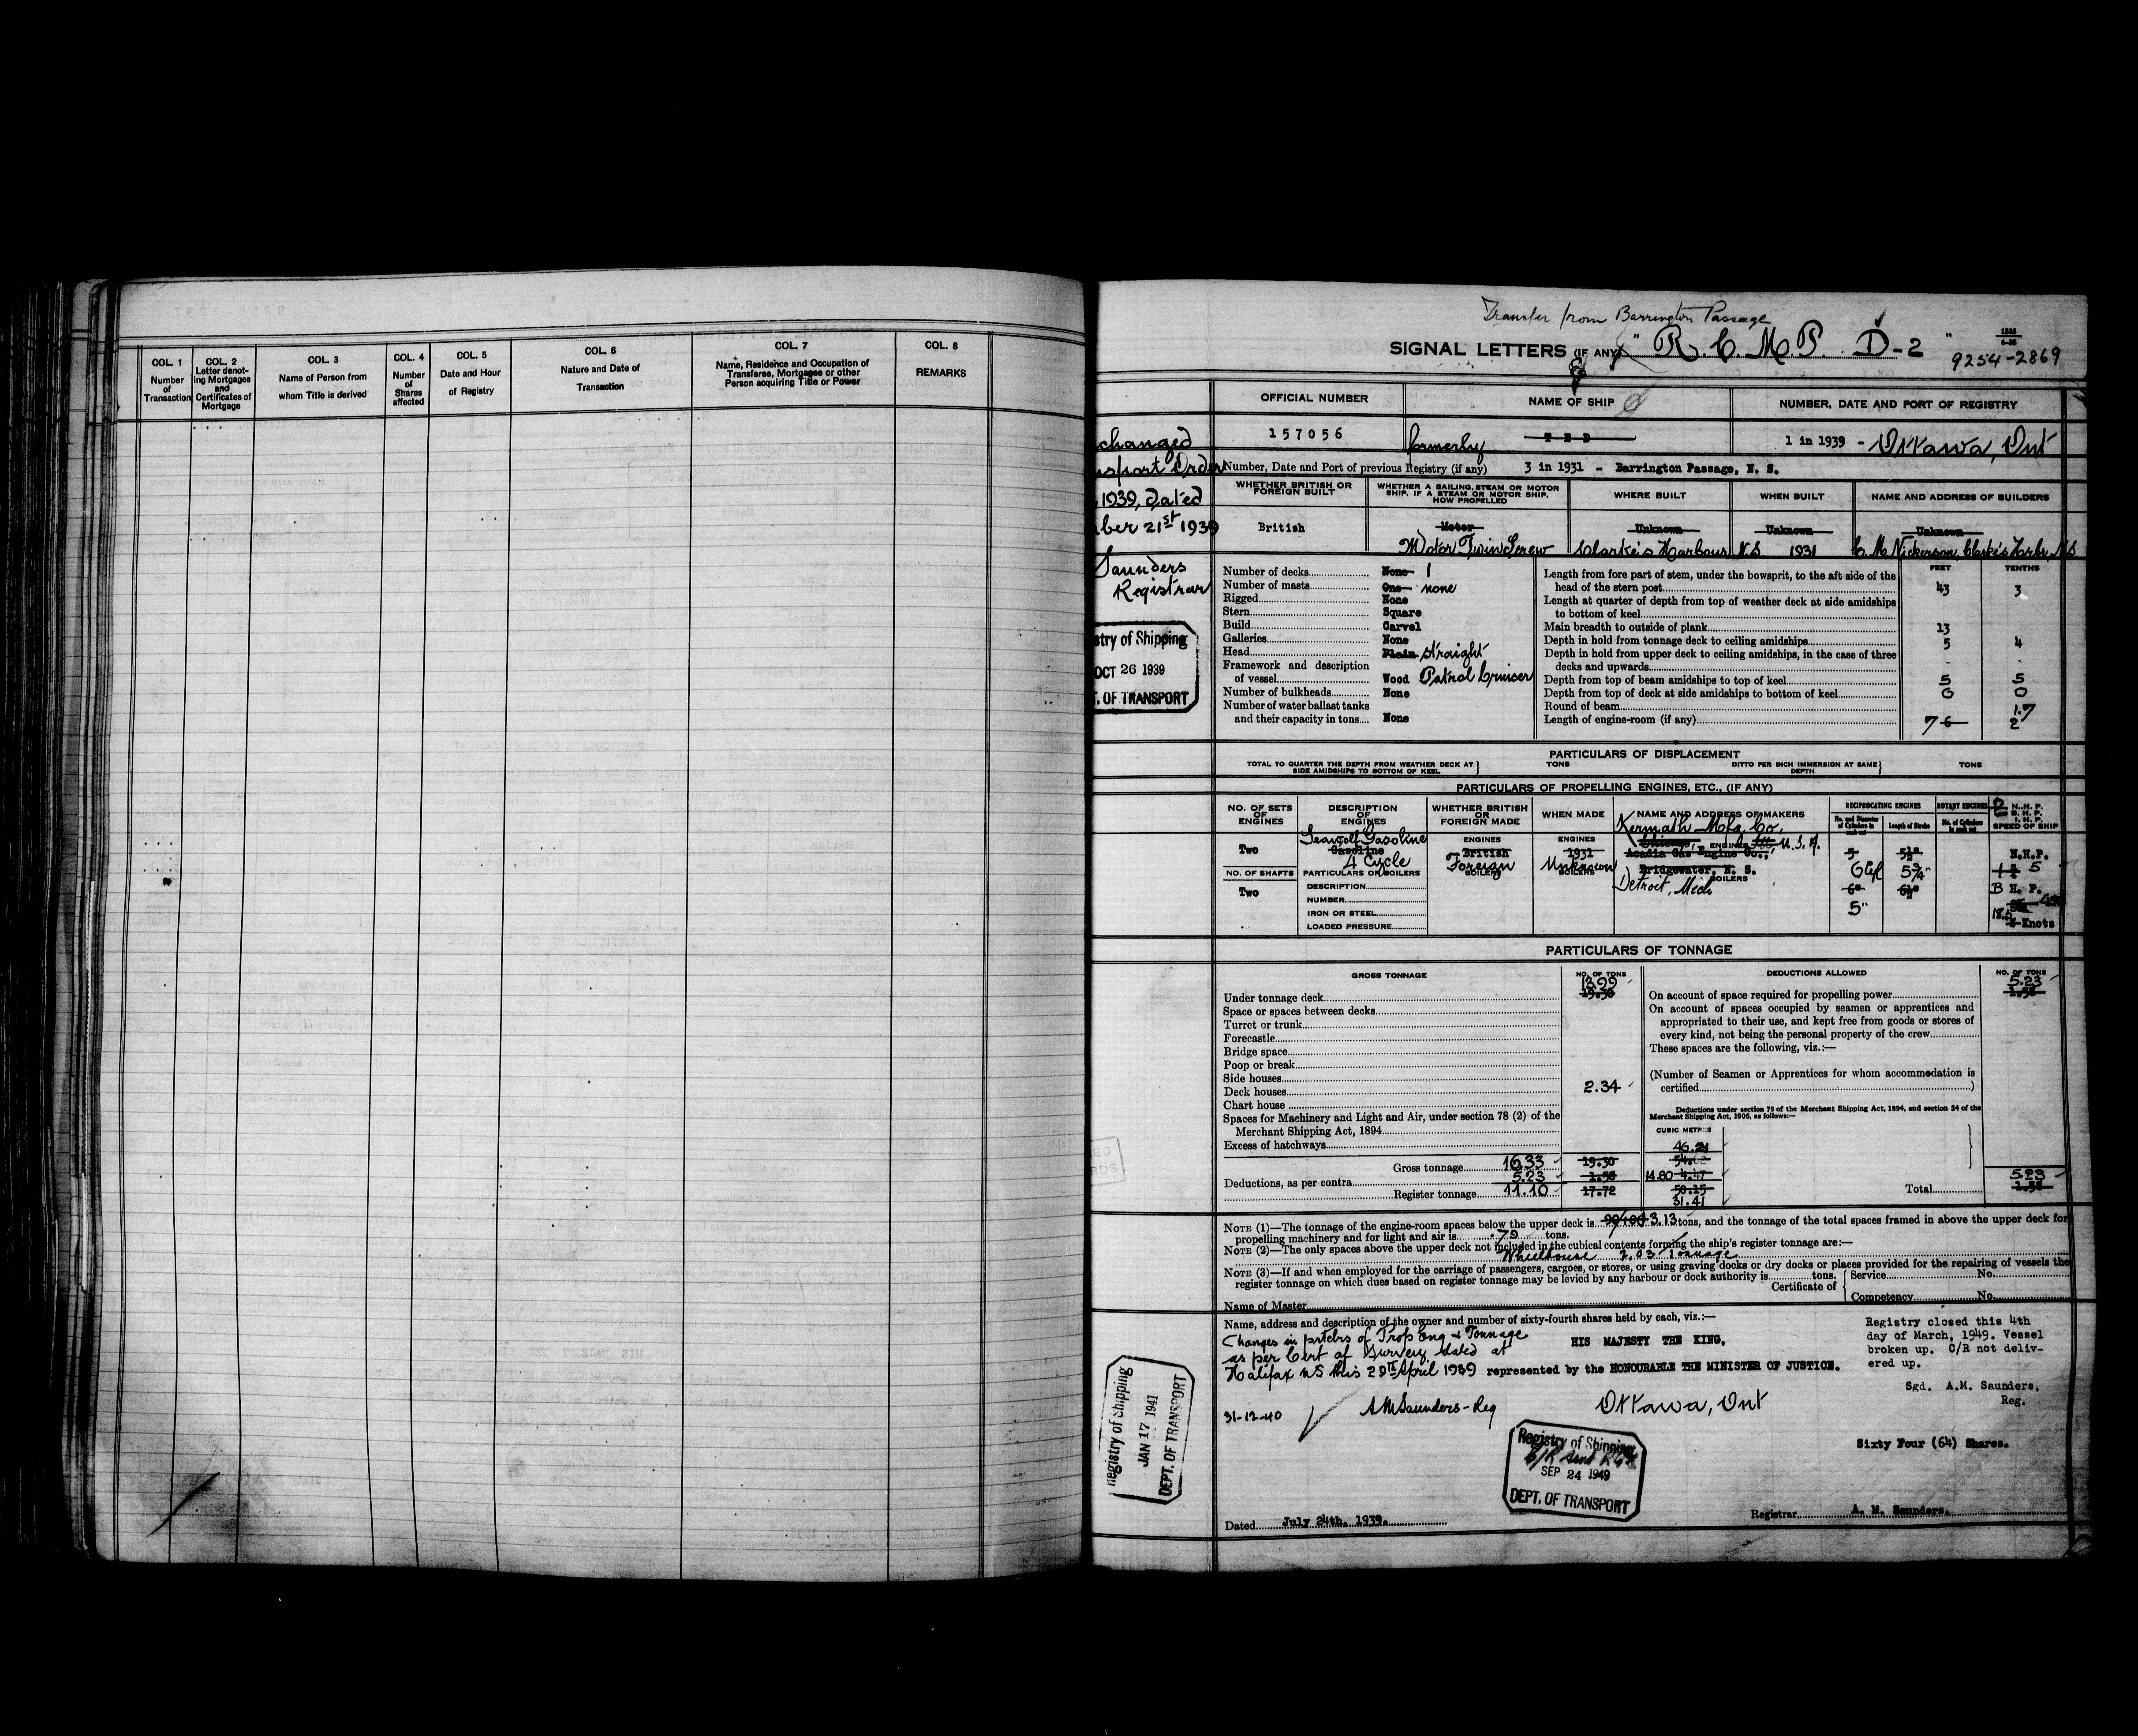 COL. 1
Number
of
Transaction
COL. 2
Letter denot-
ing Mortgages
and
Certificates of
Mortgage
COL. 3
Name of Person from
whom Title is derived
COL. 4
Number
of
Shares
affected
COL. 5
Date and Hour
of Registry
COL. 6
Nature and Date of
Transaction
COL. 7
Name, Residence and Occupation of
Transferee, Mortgagee or other
Person acquiring Title or Power
COL. 8
REMARKS
changed
nsport Order
1939, dated
ber 21st 1939
Saunders
Registrar
stry of Shipping
OCT 26 1939
T. OF TRANSPORT
Registry of Shipping
JAN 17 1941
DEPT. OF TRANSPORT
Transfer from Barrington Passage
SIGNAL LETTERS (IF ANY) " R. C. M. P. D-2 "
9254-2869
OFFICIAL NUMBER NAME OF SHIP NUMBER, DATE AND PORT OF REGISTRY
157056 formerly 1 in 1939 - Ottawa, Ont
Number, Date and Port of previous Registry (if any) 3 in 1931 - Barrington Passage, N. S.
WHETHER BRITISH OR FOREIGN BUILT
WHETHER A SAILING, STEAM OR MOTOR SHIP. IF A STEAM OR MOTOR SHIP, HOW PROPELLED
WHERE BUILT WHEN BUILT NAME AND ADDRESS OF BUILDERS
British Motor Unknown Unknown Unknown
Motor Twin Screw Clarke's Harbour N.S 1931 C. M. Nickerson, Clarke's Harbr, N.S.
Number of decks None 1
Number of masts One none
Rigged None
Stern Square
Build Carvel
Galleries None
Head Plain straight
Framework and description
of vessel Wood Patrol Cruiser
Number of bulkheads None
Number of water ballast tanks
and their capacity in tons None
FEET TENTHS
Length from fore part of stem, under the bowsprit, to the aft side of the
head of the stern post 43 3
Length at quarter of depth from top of weather deck at side amidships
to bottom of keel
Main breadth to outside of plank 13
Depth in hold from tonnage deck to ceiling amidships 5 4
Depth in hold from upper deck to ceiling amidships, in the case of three
decks and upwards - -
Depth from top of beam amidships to top of keel 5 5
Depth from top of deck at side amidships to bottom of keel 6 0
Round of beam
Length of engine-room (if any) 7 6 2
PARTICULARS OF DISPLACEMENT
TOTAL TO QUARTER THE DEPTH FROM WEATHER DECK AT
SIDE AMIDSHIPS TO BOTTOM OF KEEL
TONS
DITTO PER INCH IMMERSION AT SAME
DEPTH
TONS
PARTICULARS OF PROPELLING ENGINES, ETC., (IF ANY)
NO. OF SETS OF ENGINES
DESCRIPTION OF ENGINES
WHETHER BRITISH OR FOREIGN MADE
WHEN MADE
NAME AND ADDRESS OF MAKERS
RECIPROCATING ENGINES
No. and Diameter of Cylinders in each set
Length of Stroke
ROTARY ENGINES
No. of Cylinders in each set
N. H. P.
B. H. P.
I. H. P.
SPEED OF SHIP
Kermath Mfg. Co.
Seawolf Gasoline
Gasoline
4 Cycle
ENGINES
British
Foreign
BOILERS
ENGINES
1931
Unknown
BOILERS
ENGINES U. S. A.
Acadia Gas Engine Co.,
Bridgewater, N. S.
BOILERS
Detroit, Mich
Two
NO. OF SHAFTS
Two
PARTICULARS OF BOILERS
DESCRIPTION
NUMBER
IRON OR STEEL
LOADED PRESSURE
6 cyl 5¾"
5"
N.H.P.
B H. P.
Knots
PARTICULARS OF TONNAGE
GROSS TONNAGE NO. OF TONS
13.99
19.30
Under tonnage deck
Space or spaces between decks
Turret or trunk
Forecastle
Bridge space
Poop or break
Side houses
Deck houses 2.34
Chart house
Spaces for Machinery and Light and Air, under section 78 (2) of the
Merchant Shipping Act, 1894
Excess of hatchways
Gross tonnage 16.33 19.30
Deductions, as per contra 5.23 1.58
Register tonnage 11.10 17.72
DEDUCTIONS ALLOWED NO. OF TONS
5.23
1.58
On account of space required for propelling power
On account of spaces occupied by seamen or apprentices and
appropriated to their use, and kept free from goods or stores of
every kind, not being the personal property of the crew
These spaces are the following, viz.:—
(Number of Seamen or Apprentices for whom accommodation is
certified )
Deductions under section 79 of the Merchant Shipping Act, 1894, and section 54 of the
Merchant Shipping Act, 1906, as follows:—
CUBIC METRES
46.21
54.62
14.80 4.47
50.15
31.41
5.23
Total 1.58
NOTE (1)—The tonnage of the engine-room spaces below the upper deck is 3.13 tons, and the tonnage of the total spaces framed in above the upper deck for
propelling machinery and for light and air is .79 tons.
NOTE (2)—The only spaces above the upper deck not included in the cubical contents forming the ship's register tonnage are:—
Wheelhouse 2.03 Tonnage
NOTE (3)—If and when employed for the carriage of passengers, cargoes, or stores, or using graving docks or dry docks or places provided for the repairing of vessels the
register tonnage on which dues based on register tonnage may be levied by any harbour or dock authority is tons.
Certificate of
Service No.
Competency No.
Name of Master
Name, address and description of the owner and number of sixty-fourth shares held by each, viz.:—
Changes in prtclrs of Prop Eng & Tonnage
as per Cert of Survey dated at
Halifax NS this 29th April 1939
HIS MAJESTY THE KING,
represented by the HONOURABLE THE MINISTER OF JUSTICE.
31-12-40 A M Saunders - Reg
Ottawa, Ont
Registry closed this 4th
day of March, 1949. Vessel
broken up. C/R not deliv-
ered up.
Sgd. A.M. Saunders,
Reg.
Sixty Four (64) Shares.
Registry of Shipping
SEP 24 1949
DEPT. OF TRANSPORT
Dated July 24th, 1939. Registrar A. M. Saunders.